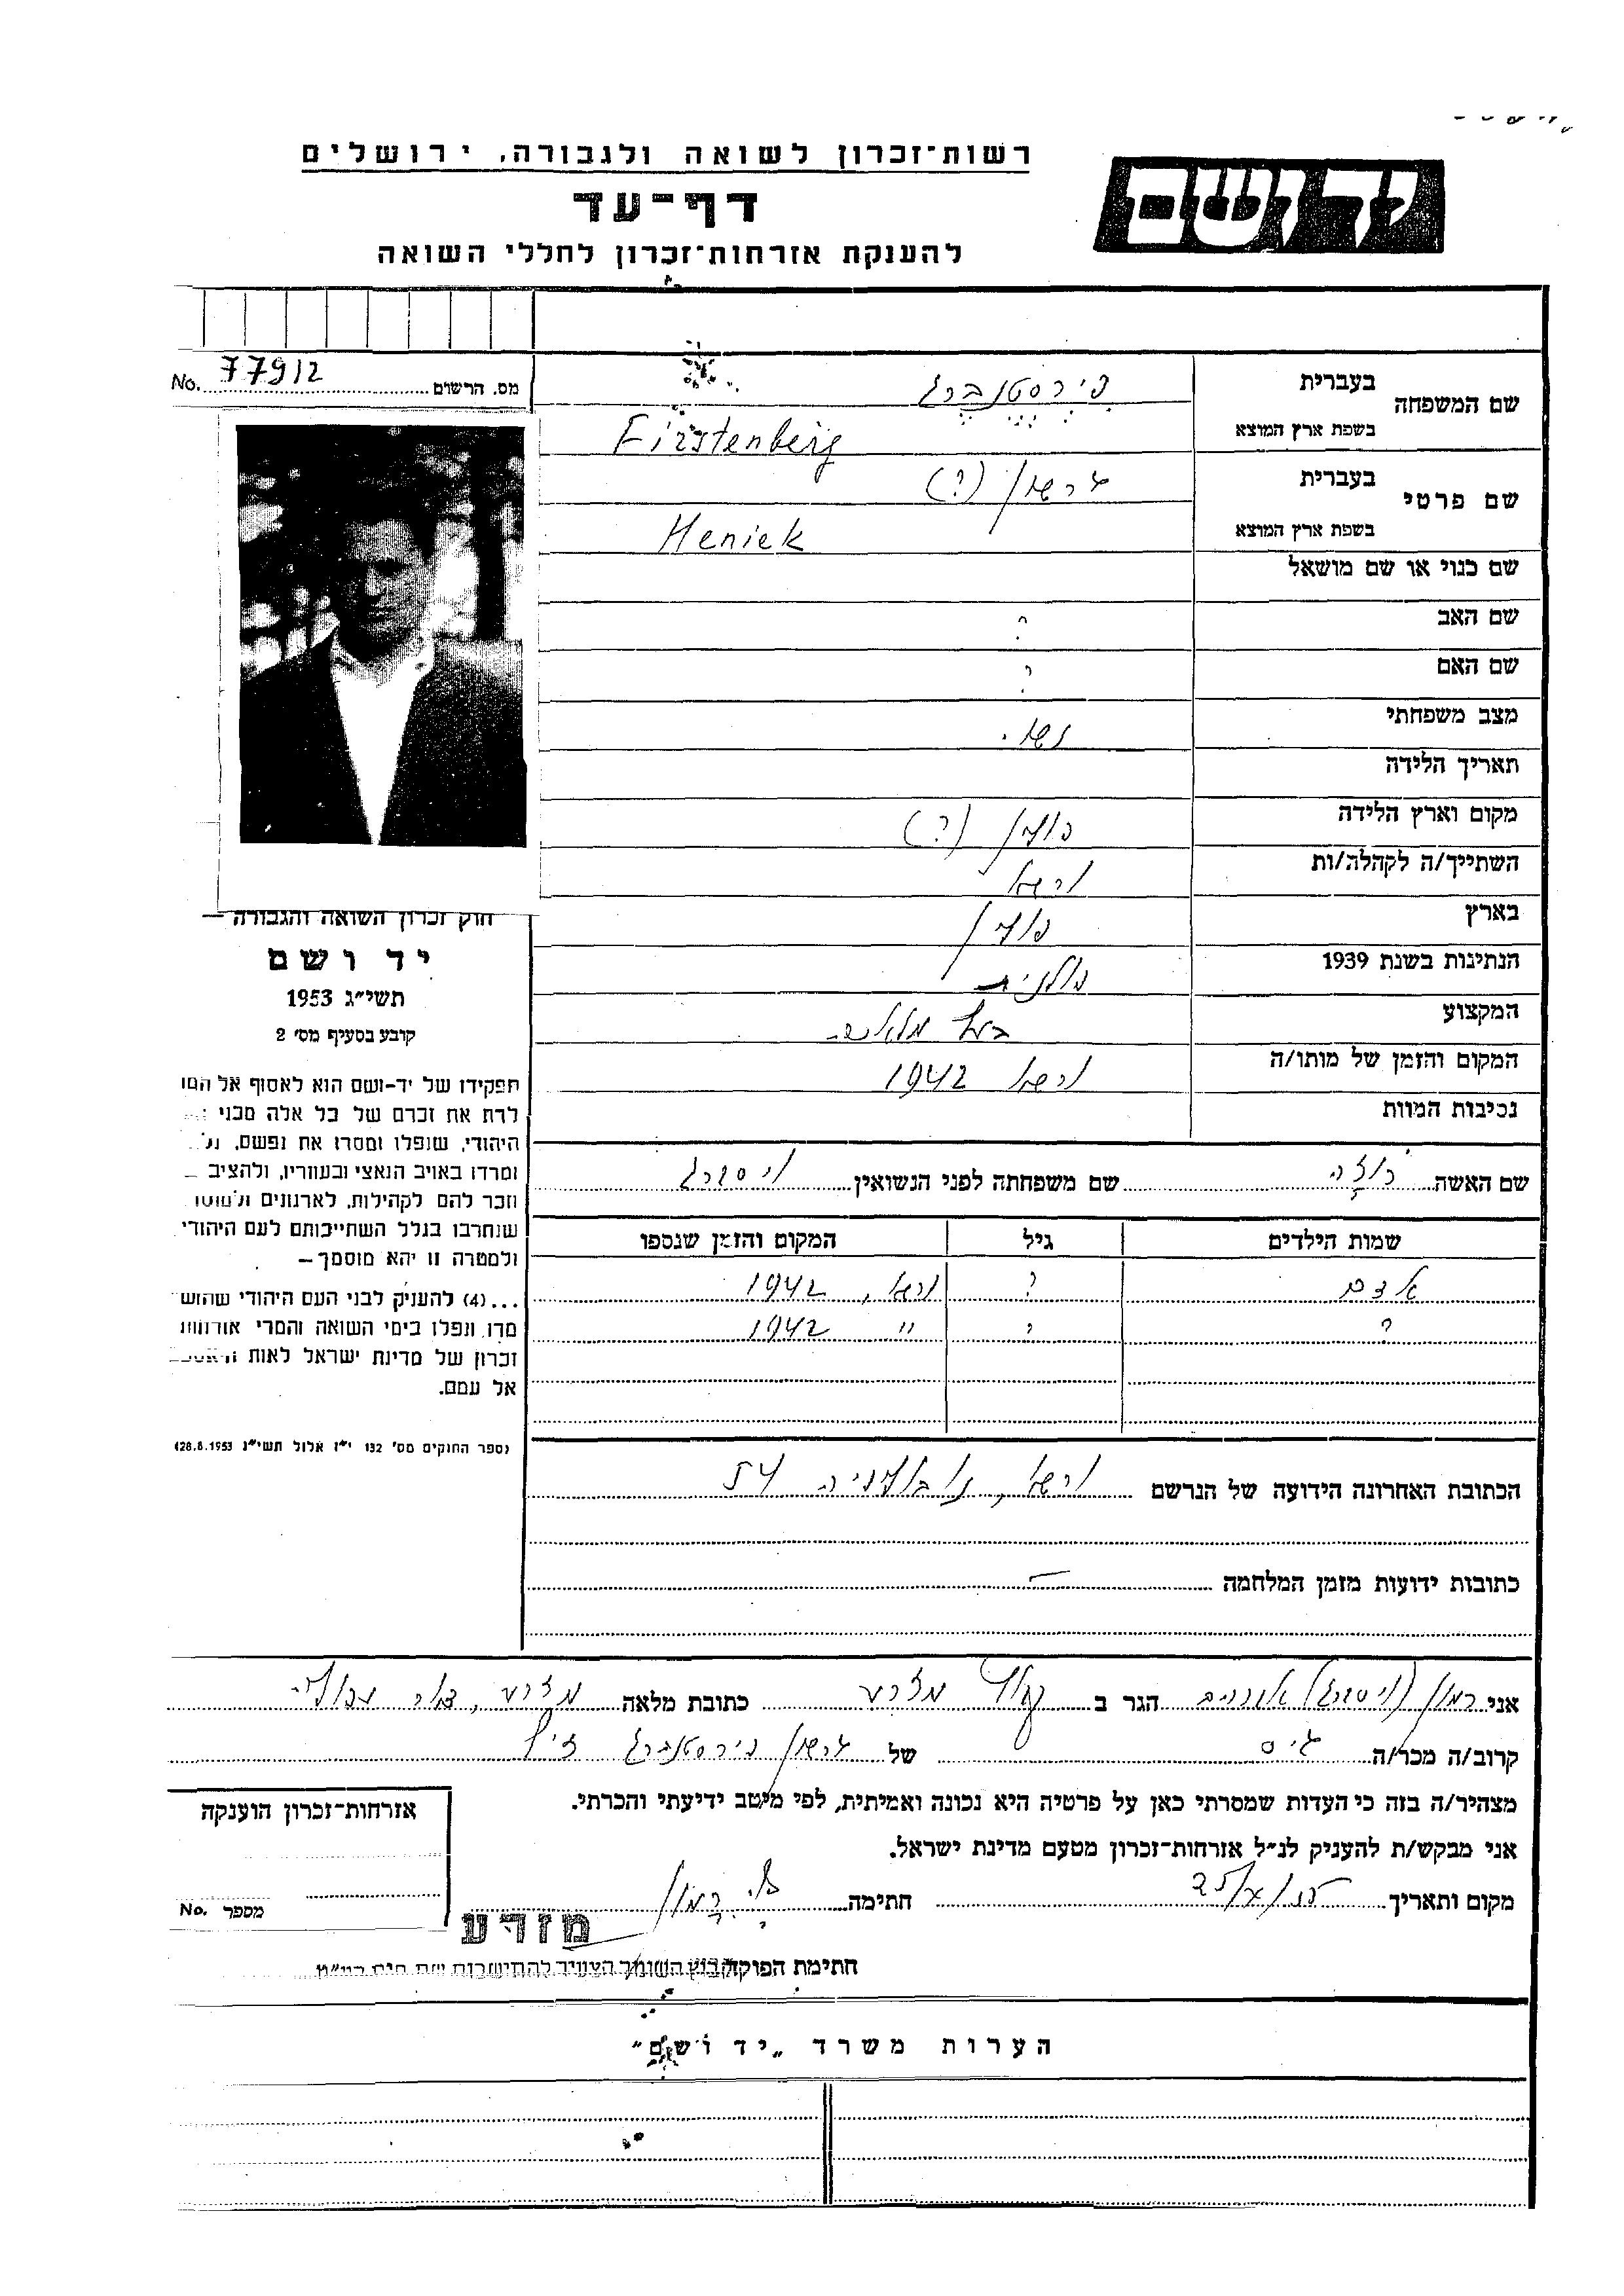 רשות־זכרון לשואה ולגבורה, ירושלים
יד ושם
דף־עד
להענקת אזרחות־זכרון לחללי השואה
מס. הרשום 77912 No.
שם המשפחה
בעברית פירסטנברג
בשפת ארץ המוצא Firstenberg
שם פרטי
בעברית גרשון (?)
בשפת ארץ המוצא Heniek
שם כנוי או שם מושאל
שם האב ?
שם האם ?
מצב משפחתי נשוי
תאריך הלידה
מקום וארץ הלידה פולין (?)
השתייך/ה לקהלה/ות ורשא
בארץ פולין
הנתינות בשנת 1939 פולנית
המקצוע בעל מלאכה
המקום והזמן של מותו/ה ורשא 1942
נסיבות המוות
חוק זכרון השואה והגבורה —
יד ושם
תשי״ג 1953
קובע בסעיף מס׳ 2
תפקידו של יד-ושם הוא לאסוף אל
לדת את זכרם של כל אלה מבני
היהודי, שנפלו ומסרו את נפשם,
ומרדו באויב הנאצי ובעוזריו, ולהציב
וזכר להם לקהילות, לארגונים
שנחרבו בגלל השתייכותם לעם היהודי
ולמטרה זו יהא מוסמך —
...(4) להעניק לבני העם היהודי
מדו ונפלו בימי השואה והמרי אזרחות
זכרון של מדינת ישראל לאות
אל עמם.
(ספר החוקים מס׳ 132 י״ז אלול תשי״ג 28.8.1953)
שם האשה רוזה שם משפחתה לפני הנשואין ויסברג
שמות הילדים גיל המקום והזמן שנספו
אדם ? ורשא, 1942
? ? ״ 1942
הכתובת האחרונה הידועה של הנרשם ורשא, 54
כתובות ידועות מזמן המלחמה —
אני רמון (ויסברג) הגר ב מזרע כתובת מלאה מזרע,
קרוב/ה מכר/ה גיס של גרשון פירסטנברג ז״ל
מצהיר/ה בזה כי העדות שמסרתי כאן על פרטיה היא נכונה ואמיתית, לפי מיטב ידיעתי והכרתי.
אני מבקש/ת להעניק לנ״ל אזרחות־זכרון מטעם מדינת ישראל.
מקום ותאריך חתימה רמון
אזרחות־זכרון הוענקה
מספר No.
מזרע
חתימת הפוקד
קבוץ השומר הצעיר להתישבות
הערות משרד „יד ושם״